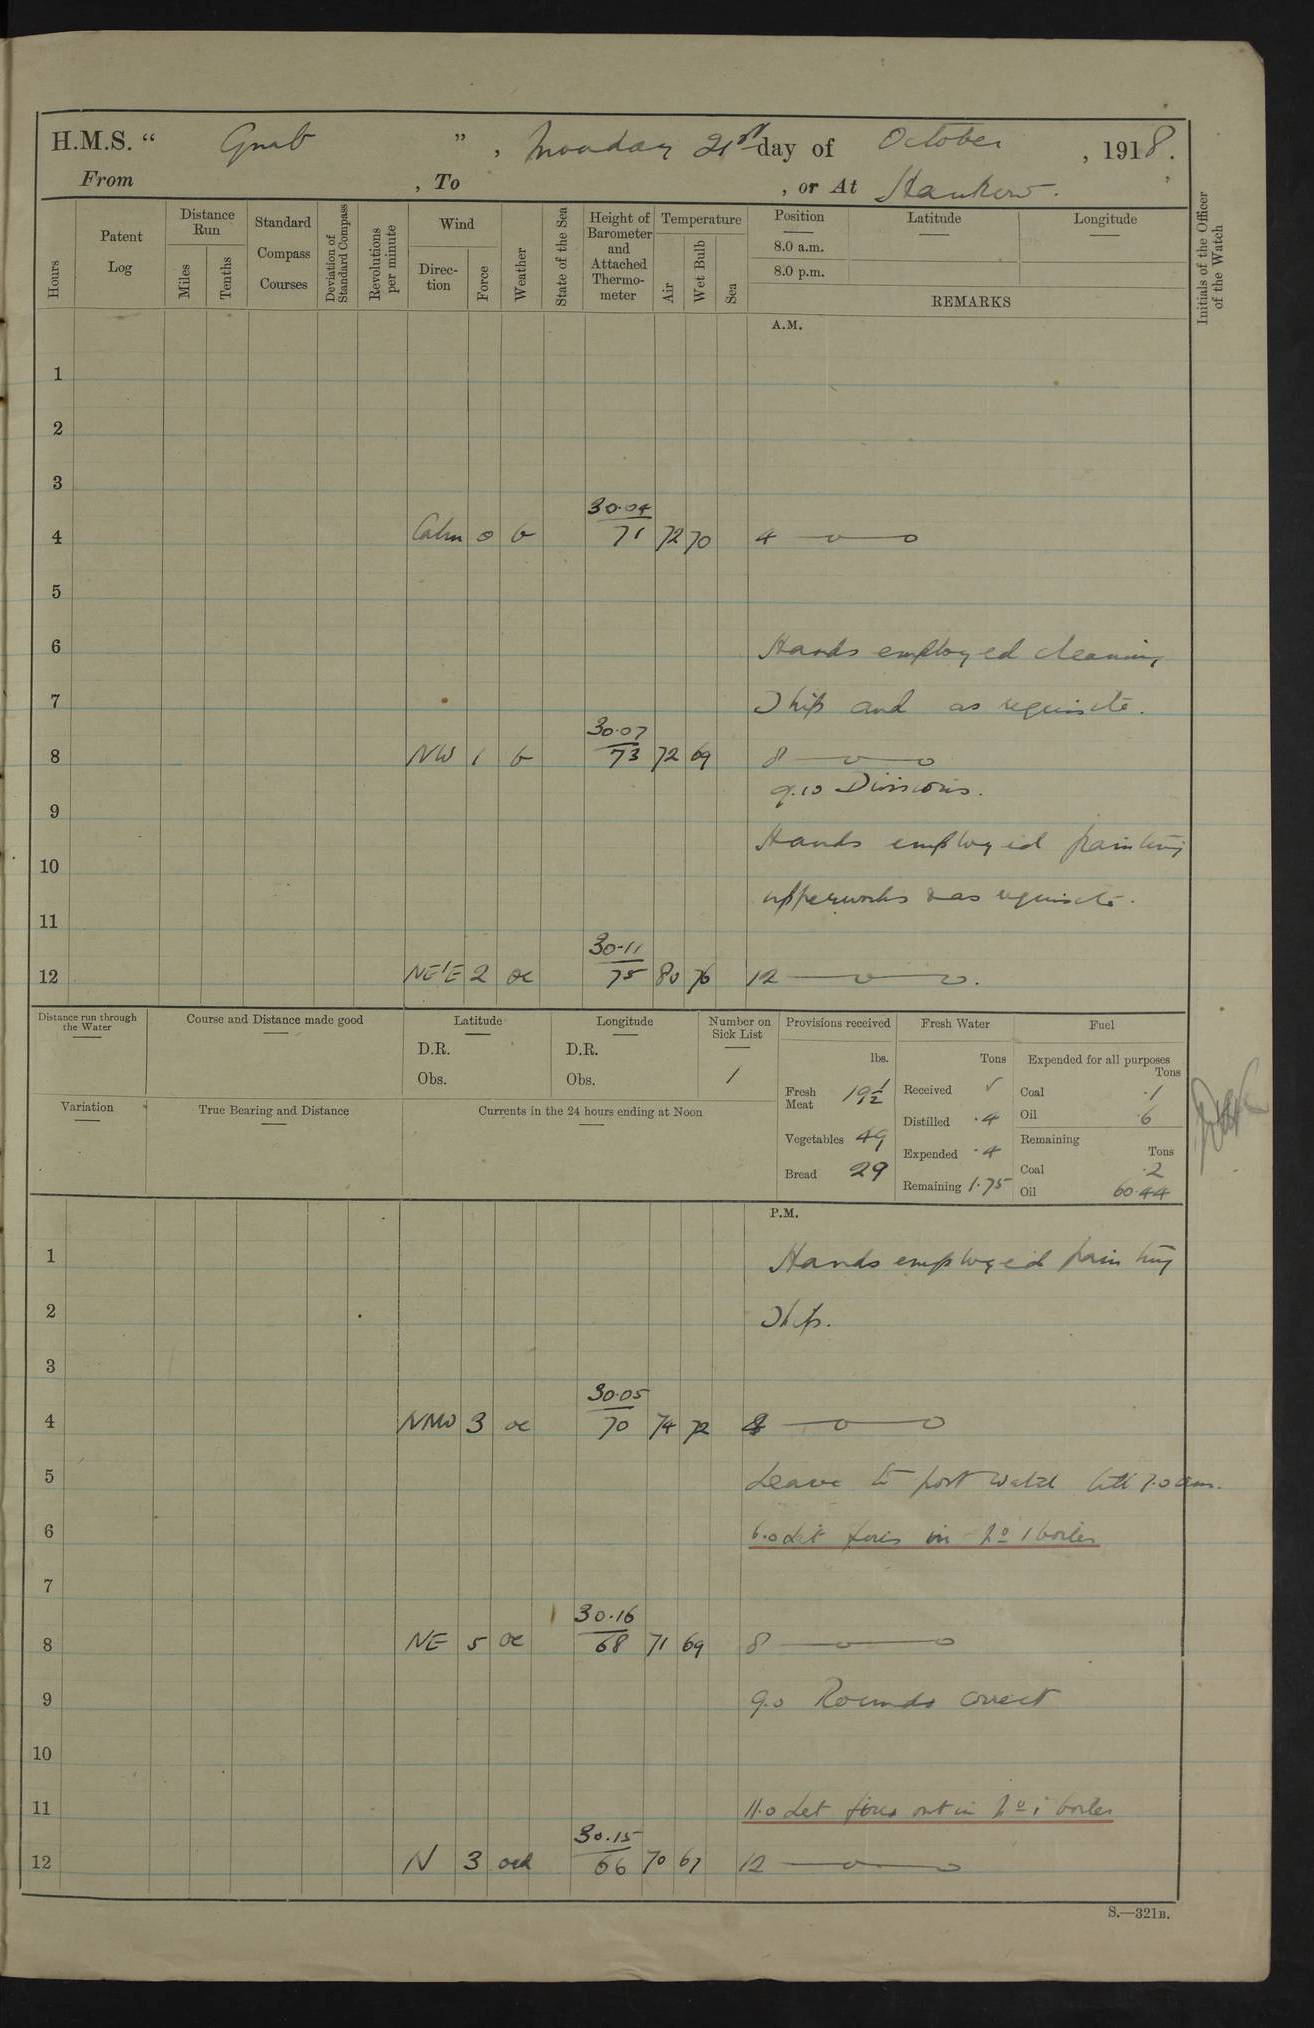 H.M.S. “ Gnat ” , Monday 21st day of October , 1918.
From , To , or At Hankow.
Hours
Patent Log
Distance Run
Miles
Tenths
Standard Compass Courses
Deviation of Standard Compass
Revolutions per minute
Wind
Direc-tion
Force
Weather
State of the Sea
Height of Barometer and Attached Thermo-meter
Temperature
Air
Wet Bulb
Sea
Position
8.0 a.m.
8.0 p.m.
Latitude
Longitude
REMARKS
Initials of the Officer of the Watch
A.M.
1
2
3
30.04
4 Calm 0 b 71 72 70 4
5
6 Hands employed cleaning
7 Ship and as requisite.
30.07
8 NW 1 b 73 72 69 8
9.10 Divisions.
9
Hands employed painting
10
upperworks & as requisite.
11
30.11
12 NE'E 2 oc 75 80 76 12
Distance run through the Water
Course and Distance made good
Latitude
D.R.
Obs.
Longitude
D.R.
Obs.
Number on Sick List
1
Provisions received
lbs.
Fresh Meat 19 1/2
Vegetables 49
Bread 29
Fresh Water
Tons
Received ✓
Distilled .4
Expended .4
Remaining 1.75
Fuel
Expended for all purposes
Tons
Coal .1
Oil .6
Remaining
Tons
Coal .2
Oil 60.44
Variation
True Bearing and Distance
Currents in the 24 hours ending at Noon
P.M.
1 Hands employed painting
2 Ship.
3
30.05
4 NNW 3 oc 70 74 72 4
5 Leave to port watch till 7.0 am.
6 6.0 Lit fires in No 1 boiler
7
30.16
8 NE 5 oc 68 71 69 8
9 9.0 Rounds correct
10
11 11.0 Let fires out in No 1 boiler
30.15
12 N 3 66 70 67 12
S.—321B.